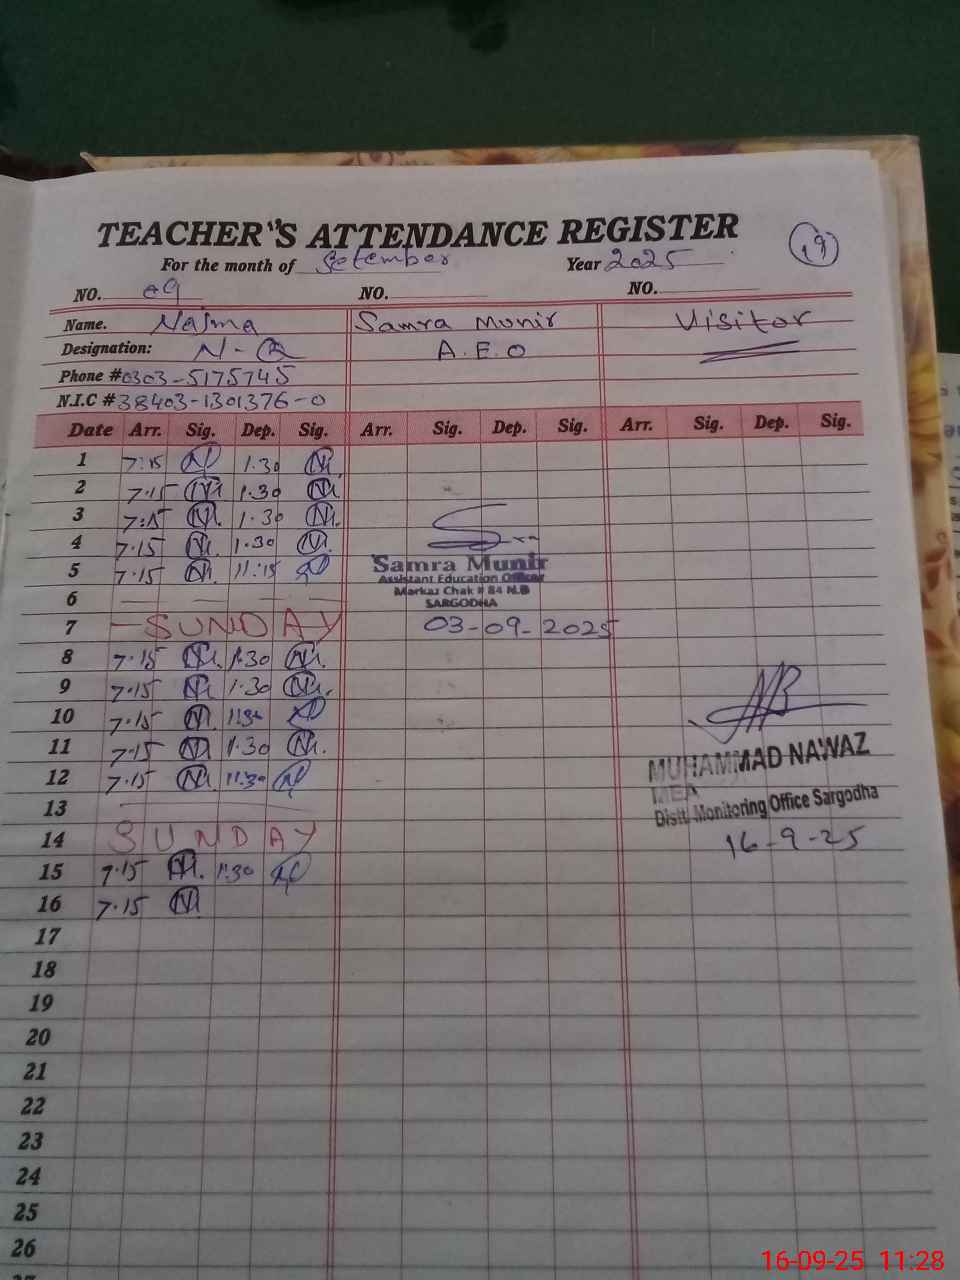 TEACHER'S ATTENDANCE REGISTER
19
For the month of Setember Year 2025
NO. 09 NO. NO.
Name. Najma Samra Munir Visitor
Designation: N-Q A.E.O
Phone #0303-5175745
N.I.C #38403-1301376-0
Date Arr. Sig. Dep. Sig. Arr. Sig. Dep. Sig. Arr. Sig. Dep. Sig.
1 7:15 N. 1.30 N.
2 7.15 N. 1.30 N.
3 7:15 N. 1.30 N.
4 7.15 N. 1.30 N.
5 7.15 N. 11:15
Samra Munir
Assistant Education Officer
Markaz Chak # 84 N.B
SARGODHA
6
7 SUNDAY 03-09-2025
8 7.15 N. 1.30 N.
9 7.15 N. 1.30 N.
10 7.15 N.
11 7.15 N. 1.30 N.
12 7.15 N. 11:30
MUHAMMAD NAWAZ
MEA
Distt. Monitoring Office Sargodha
13
14 SUNDAY 16-9-25
15 7.15 N. 1:30
16 7.15 N.
17
18
19
20
21
22
23
24
25
26
16-09-25 11:28